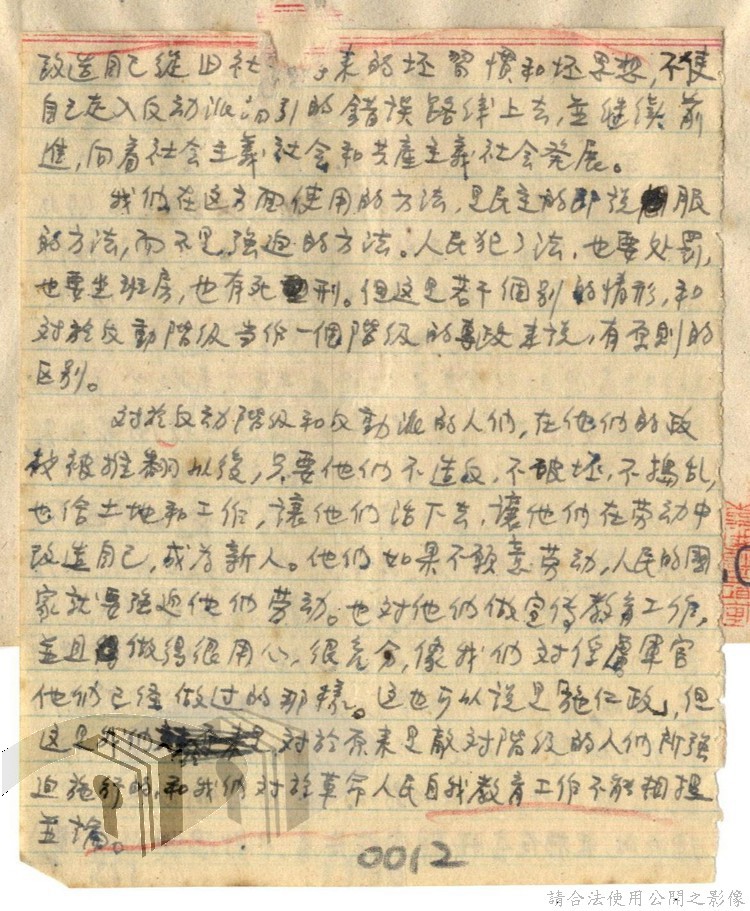 改造自己從旧社 来的坏習慣和坏思想，不使
自己走入反动派 引的錯誤路线上去，並继续前
進，向着社会主義社会和共產主義社会発展。
我们在这方面使用的方法，是民主的即说服
的方法，而不是强迫的方法。人民犯了法，也要处罰，
也要坐班房，也有死刑。但这是若干個别的情形，和
对於反動階级当作一個階级的專政来说，有原則的
区别。
对於反动階级和反動派的人们，在他们的政
权被推翻以後，只要他们不造反，不破坏，不搗乱，
也给土地和工作，讓他们活下去，讓他们在劳动中
改造自己，成为新人。他们如果不願意劳动，人民的國
家就要强迫他们劳动。也对他们做宣传教育工作，
並且做得很用心，很充分，像我们对俘虜軍官
他们已经做过的那樣。这也可以说是「施仁政」，但
这是我们 对於原来是敵对階级的人们所强
迫施行的，和我们对於革命人民自我教育工作不能相提
並論。
0012
請合法使用公開之影像